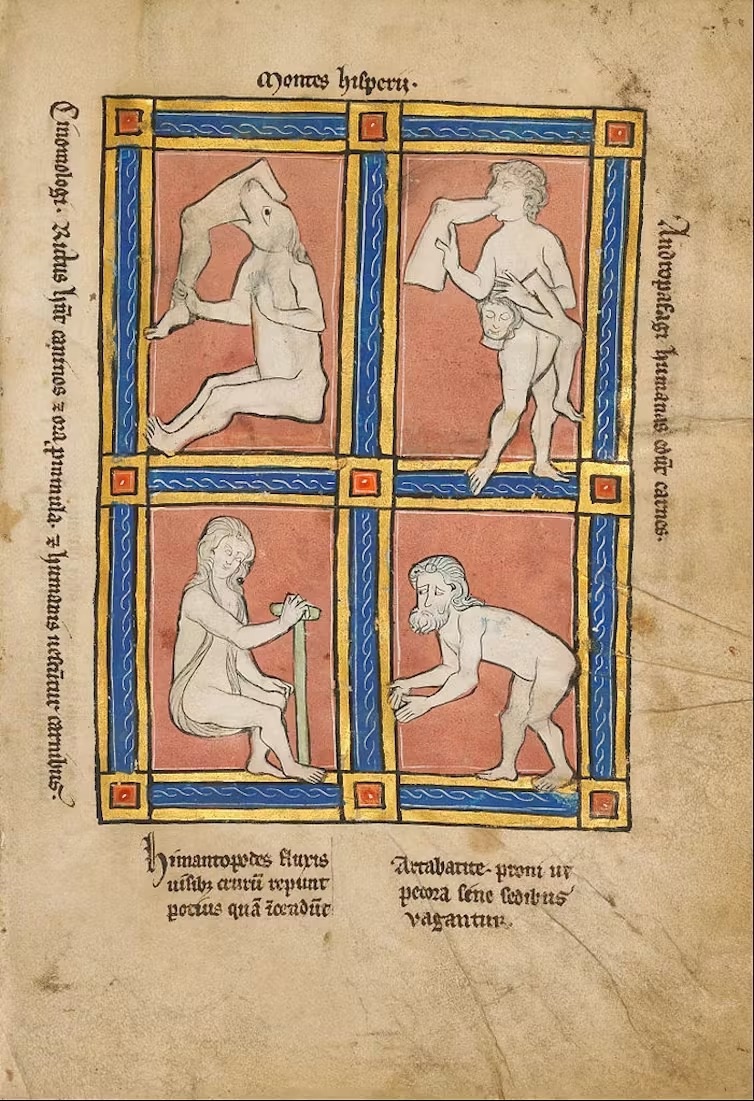 Montes hisperii.
Cinomologi. Rictus hn̄t caninos ⁊ ora prminula. ⁊ humanis uescūtur carnibus.
Andropafagi humanas edūt carnes.
himantopodes fluxis
uisibꝫ crurū repunt
potius quā īcedūt
Artabatite. proni ut
pecora sine sedibus
vagantur.